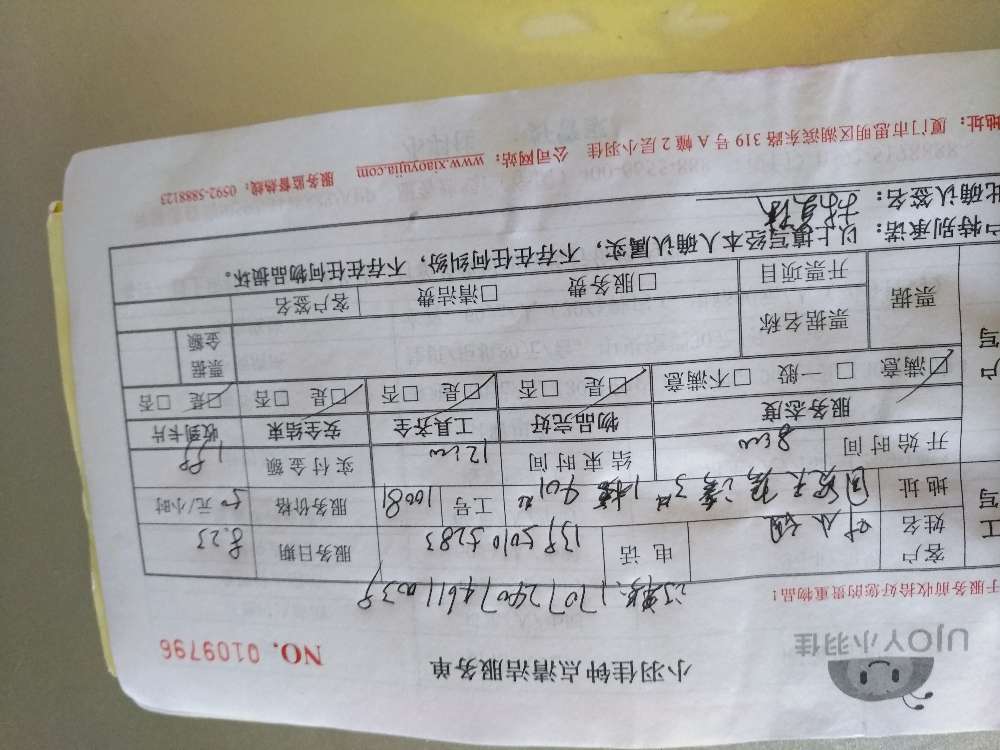 UJOY小羽佳
小羽佳钟点清洁服务单
NO. 0109796
于服务前收拾好您的贵重物品！
1707240746110039
客户姓名 叶小姐 电话 13950105283 服务日期 8.23
地址 1楼901 工号 10081 服务价格 50 元/小时
开始时间 8:00 结束时间 12:00 实付金额
服务态度 物品完好 工具齐全 安全结束 收到卡片
☑满意 □一般 □不满意 ☑是 □否 ☑是 □否 ☑是 □否 ☑是 □否
票据 票据名称 票据金额
开票项目 □服务费 □清洁费 客户签名
户特别承诺：以上填写经本人确认属实，不存在任何纠纷，不存在任何物品损坏。
此确认签名：
地址：厦门市思明区湖滨东路 319 号 A 幢 2 层小羽佳 公司网站：www.xiaoyujia.com 服务监督热线：0592-5888123